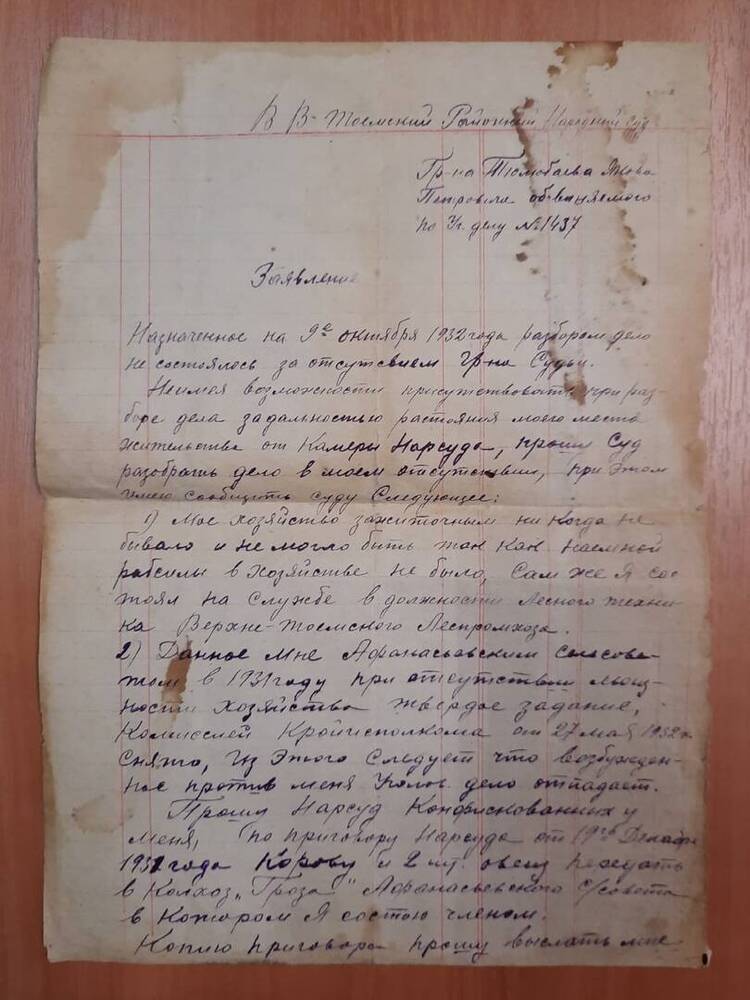 В В-Тоемский Районный Народный суд
Гр-на Тюмобаева Якова
Петровича обвиняемого
по Уг. делу №1437
Заявление
Назначенное на 9е октября 1932 года разбором дело
не состоялось за отсутсвием гр-на Судьи.
Неимея возможности присутствовать при раз-
боре дела за дальностью растояния моего места
жительства от Камеры Нарсуда, прошу Суд
разобрать дело в моем отсутствии, при этом
имею сообщить суду Следующее:
1) Мое хозяйство зажиточным никогда не
бывало и не могло быть так как наемной
рабсилы в хозяйстве не было, сам же я сос-
тоял на службе в должности Лесного техни-
ка Верхне-Тоемского Леспромхоза.
2) Данное мне Афанасьевским сельсове-
том в 1931 году при отсутствии мощ-
ности хозяйства твердое задание,
Комиссией Крайисполкома от 27 мая 1932 г.
снято, Из этого следует что возбужден-
ное против меня Уголов. дело отпадает.
Прошу Нарсуд Конфискованных у
меня, по приговору Нарсуда от 19го Декабр
1931 года Корову и 2 шт. овец передать
в Колхоз „Гроза" Афанасьевского с/совета
в Котором Я состою членом.
Копию приговора прошу выслать мне